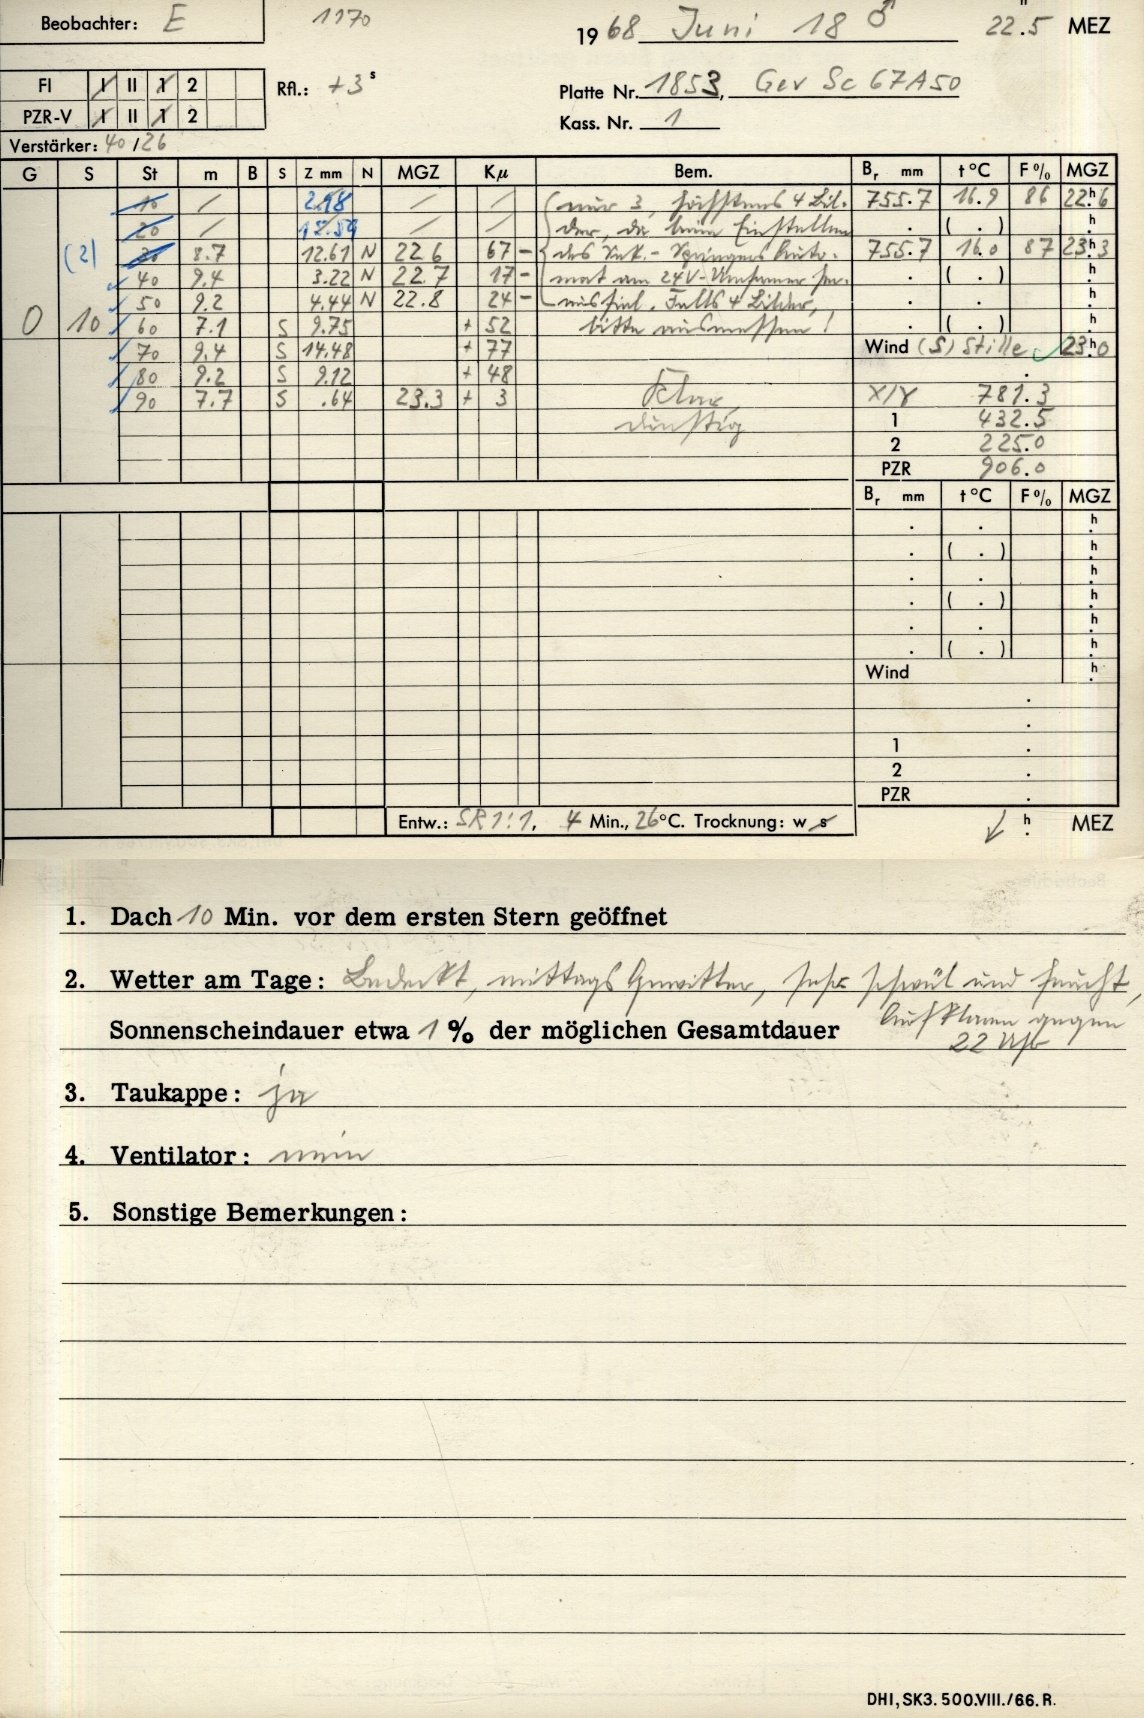 Beobachter: E 1170 1968 Juni 18 ♂ 22.5 h MEZ
FI I II 1 2 Rfl.: +3 s Platte Nr. 1853, Gev Sc 67A50
PZR-V I II 1 2 Kass. Nr. 1
Verstärker: 40/26
G S St m B S Z mm N MGZ Kμ Bem. Br mm t °C F % MGZ
10 / 2.98 / / (nur 3, höchstens 4 Bil- 755.7 16.9 86 22h6
20 / 12.59 / / der, da beim Einstellen . ( . ) h
(2) 30 8.7 12.61 N 22.6 67 - des Auto- 755.7 16.0 87 23h3
40 9.4 3.22 N 22.7 17 - mat am 24V-Umformer he- . ( . ) h
50 9.2 4.44 N 22.8 24 - rausfiel. Falls 4 Bilder, . . h
0 10 60 7.1 S 9.75 + 52 bitte ausmessen! . ( . ) h
70 9.4 S 14.48 + 77 Wind (S) Stille 23h0
80 9.2 S 9.12 + 48
90 7.7 S .64 23.3 + 3 Klar, X/Y 781.3
dunstig 1 432.5
2 225.0
PZR 906.0
Br mm t °C F % MGZ
. . h
. ( . ) h
. . h
. ( . ) h
. . h
. ( . ) h
Wind h
.
.
1 .
2 .
PZR .
Entw.: SR 1:1, 4 Min., 26 °C. Trocknung: w s h MEZ
1. Dach 10 Min. vor dem ersten Stern geöffnet
2. Wetter am Tage: Bedeckt, mittags Gewitter, sehr schwül und feucht,
Sonnenscheindauer etwa 1 % der möglichen Gesamtdauer Aufklaren gegen
22 Uhr
3. Taukappe: ja
4. Ventilator: nein
5. Sonstige Bemerkungen:
DHI, SK3. 500.VIII./66. R.